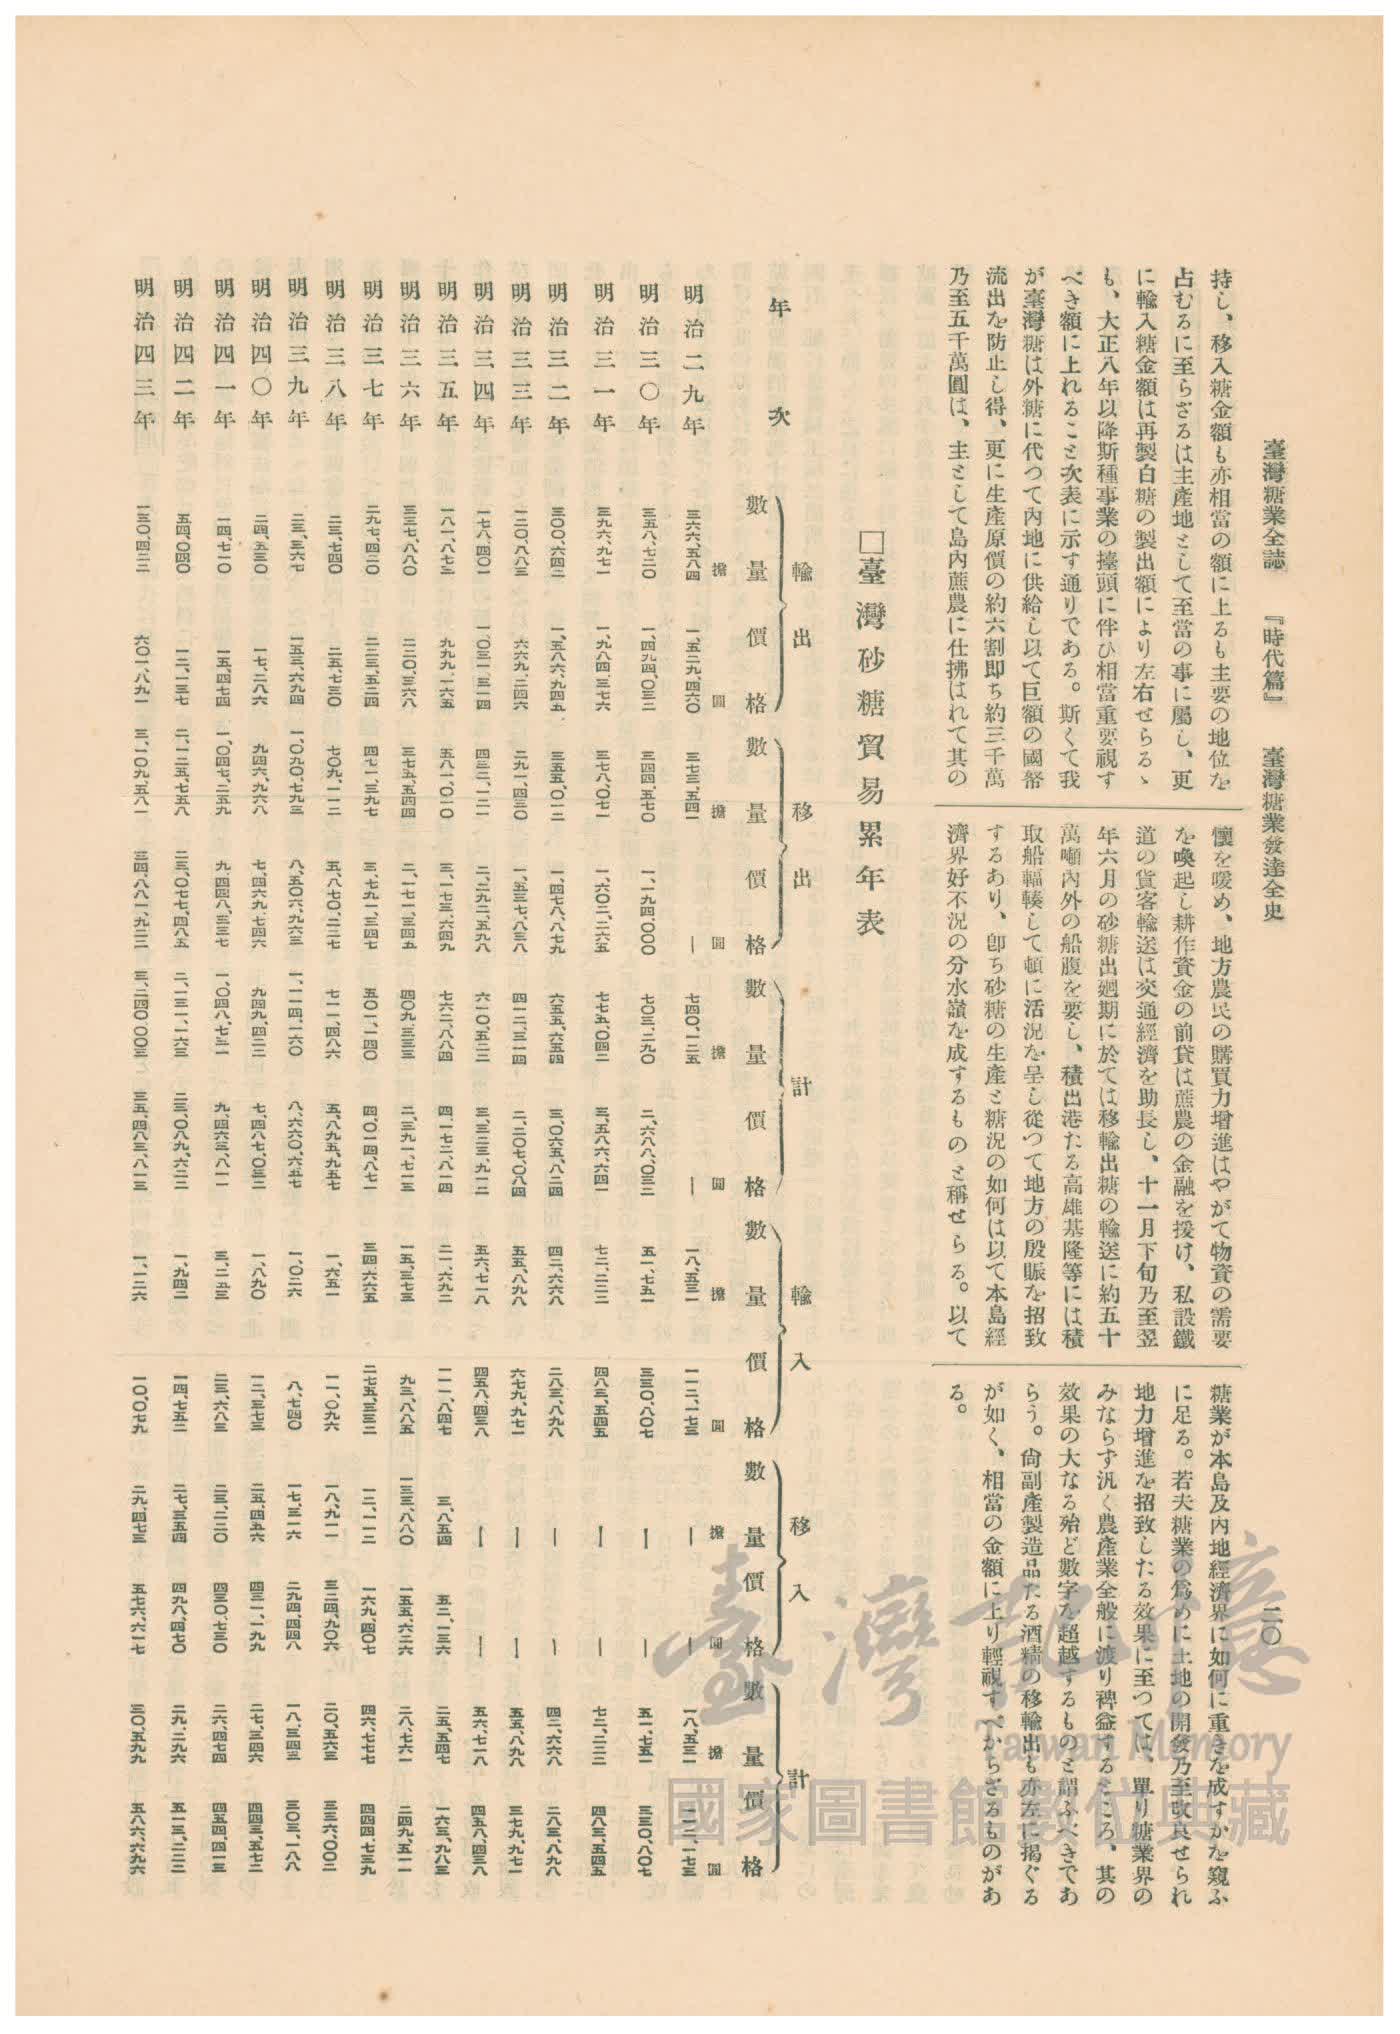 臺灣糖業全誌 『時代篇』 臺灣糖業發達全史
二〇
持し、移入糖金額も亦相當の額に上るも主要の地位を
占むるに至らざるは主產地として至當の事に屬し、更
に輸入糖金額は再製白糖の製出額により左右せらるゝ
も、大正八年以降斯種事業の擡頭に伴ひ相當重要視す
べき額に上れること次表に示す通りである。斯くて我
が臺灣糖は外糖に代つて內地に供給し以て巨額の國幣
流出を防止し得、更に生產原價の約六割即ち約三千萬
乃至五千萬圓は、主として島內蔗農に仕拂はれて其の
懷を暖め、地方農民の購買力增進はやがて物資の需要
を喚起し耕作資金の前貸は蔗農の金融を援け、私設鐵
道の貨客輸送は交通經濟を助長し、十一月下旬乃至翌
年六月の砂糖出廻期に於ては移輸出糖の輸送に約五十
萬噸內外の船腹を要し、積出港たる高雄基隆等には積
取船輻輳して頓に活況を呈し從つて地方の殷賑を招致
するあり、卽ち砂糖の生產と糖況の如何は以て本島經
濟界好不況の分水嶺を成するものと稱せらる。以て
糖業が本島及內地經濟界に如何に重きを成すかを窺ふ
に足る。若夫糖業の爲めに土地の開發乃至改良せられ
地力增進を招致したる效果に至つては、單り糖業界の
みならず汎く農產業全般に渡り裨益するところ、其の
效果の大なる殆ど數字を超越するものと謂ふべきであ
らう。尙副產製造品たる酒精の移輸出も亦左に揭ぐる
が如く、相當の金額に上り輕視すべからざるものがあ
る。
□臺灣砂糖貿易累年表
年次 輸出 移出 計 輸入 移入 計
數量 價格 數量 價格 數量 價格 數量 價格 數量 價格 數量 價格
擔 圓 擔 圓 擔 圓 擔 圓 擔 圓 擔 圓
明治二九年 三六六、五八四 一、五二九、四六〇 三七三、五四一 — 七四〇、一二五 — 一八、五三一 一一二、一七三 — — 一八、五三一 一一二、一七三
明治三〇年 三五八、七二〇 一、四九四、〇三二 三四四、五七〇 一、一九四、〇〇〇 七〇三、二九〇 二、六八八、〇三二 五一、七五一 三三〇、八〇七 — — 五一、七五一 三三〇、八〇七
明治三一年 三九六、九七一 一、九八四、三七六 三七八、〇七一 一、六〇二、二六五 七七五、〇四二 三、五八六、六四一 七二、二三二 四八三、五四五 — — 七二、二三二 四八三、五四五
明治三二年 三〇〇、六四二 一、五八六、九四五 三五五、〇一二 一、四七八、八七九 六五五、六五四 三、〇六五、八二四 四二、六六八 二八三、八九八 — — 四二、六六八 二八三、八九八
明治三三年 一二〇、八八三 六六九、二四六 二九一、四三〇 一、五三七、八三八 四一二、三一四 二、二〇七、〇八四 五五、八九八 六七九、九七一 — — 五五、八九八 三七九、九七一
明治三四年 一七八、四〇一 一、〇三一、三一四 四三二、一二一 二、二九二、五九八 六一〇、五二三 三、三二三、九一二 五六、七一八 四五八、四三八 — — 五六、七一八 四五八、四三八
明治三五年 一八一、八七三 九九九、一六五 五八一、〇一〇 三、一七三、六四九 七六二、八八四 四、一七二、八一四 二一、六九二 一一一、八四七 三、八五四 五二、一三六 二五、五四七 一六三、九八三
明治三六年 三三七、八八〇 二二〇、三六八 三七五、五四四 二、一七一、三四五 四〇九、三三三 二、三九一、七一三 一五、三七三 九三、八八五 一三三、八八〇 一五五、六二六 二八、七六一 二四九、五一一
明治三七年 二九七、四二〇 二二三、五二四 四七一、三九七 三、七九一、三四七 五〇一、一四〇 四、〇一四、八七一 三四、六六五 二七五、三三二 一二、一一二 一六九、四〇七 四六、七七七 四四四、七三九
明治三八年 二三、七四〇 二五、七三〇 七〇九、一一二 五、八七〇、二二七 七一一、四八六 五、八九五、九五七 一、六五一 一一、〇九六 一八、九一一 三二四、九〇六 二〇、五六三 三三六、〇〇二
明治三九年 二三、三六七 一五三、六九四 一、〇九〇、七九三 八、五〇六、九六三 一、一一四、一六〇 八、六六〇、六五七 一、〇二六 八、七四〇 一七、三一六 二九四、四四八 一八、三四三 三〇三、一八八
明治四〇年 二四、五三〇 一七、二八六 九四六、九六八 七、四六九、七四六 九四九、四二二 七、四八七、〇三二 一、八九〇 一二、三七三 二五、四五六 四三一、一九九 二七、三四六 四四三、五七二
明治四一年 一四、七一〇 一五、四七四 一、〇四七、二五九 九、四四八、三三七 一、〇四八、七三一 九、四六三、八一一 三、二五三 二三、六八三 二三、二二〇 四三〇、七三〇 二六、四七四 四五四、四一三
明治四二年 五四、〇四〇 一二、一三七 二、一二五、七五八 二三、〇七七、四八五 二、一三一、一六三 二三、〇八九、六二二 一、九四二 一四、七五二 二七、三五四 四九八、四七〇 二九、二九六 五一三、二二二
明治四三年 一三〇、四二二 六〇一、八九一 三、一〇九、五八一 三四、八八一、九二二 三、二四〇、〇〇三 三五、四八三、八一三 一、一二六 一〇、〇七九 二九、四七三 五七六、六一七 三〇、五九九 五八六、六九六
臺灣記憶
Taiwan Memory
國家圖書館數位典藏